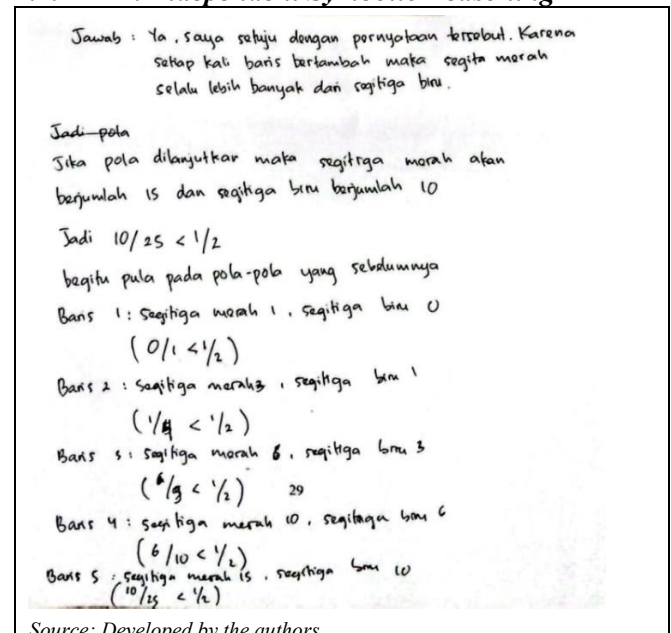 Jawab : Ya, saya setuju dengan pernyataan tersebut. Karena
setiap kali baris bertambah maka segita merah
selalu lebih banyak dari segitiga biru.
Jadi pola
Jika pola dilanjutkan maka segitiga merah akan
berjumlah 15 dan segitiga biru berjumlah 10
Jadi 10/25 < 1/2
begitu pula pada pola-pola yang sebelumnya
Baris 1 : segitiga merah 1, segitiga biru 0
(0/1 < 1/2)
Baris 2 : segitiga merah 3, segitiga biru 1
(1/4 < 1/2)
Baris 3 : segitiga merah 6, segitiga biru 3
(6/9 < 1/2) 29
Baris 4 : segitiga merah 10, segitiga biru 6
(6/10 < 1/2)
Baris 5 : segitiga merah 15, segitiga biru 10
(10/25 < 1/2)
Source: Developed by the authors